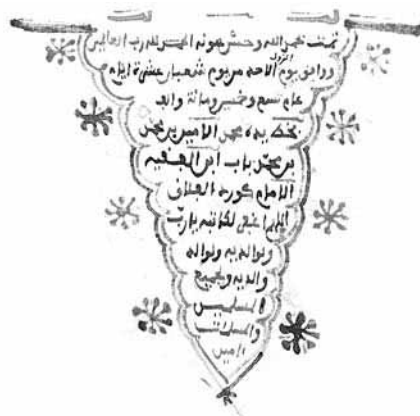 تمت بحمد الله وحسن عونه الحمد لله رب العالمين
ووافق يوم الاحد من يوم شعبان عشرة ايام
عام تسع وخمسين ومائة والف
بخط يده محمد الامين بن محمد
بن محمد باب ابن الفقيه
الامام كورد
اللهم اغفر لكاتبه يا رب
ولوالديه ولوالد
والديه ولجميع
المسلمين
والمسلمات
امين